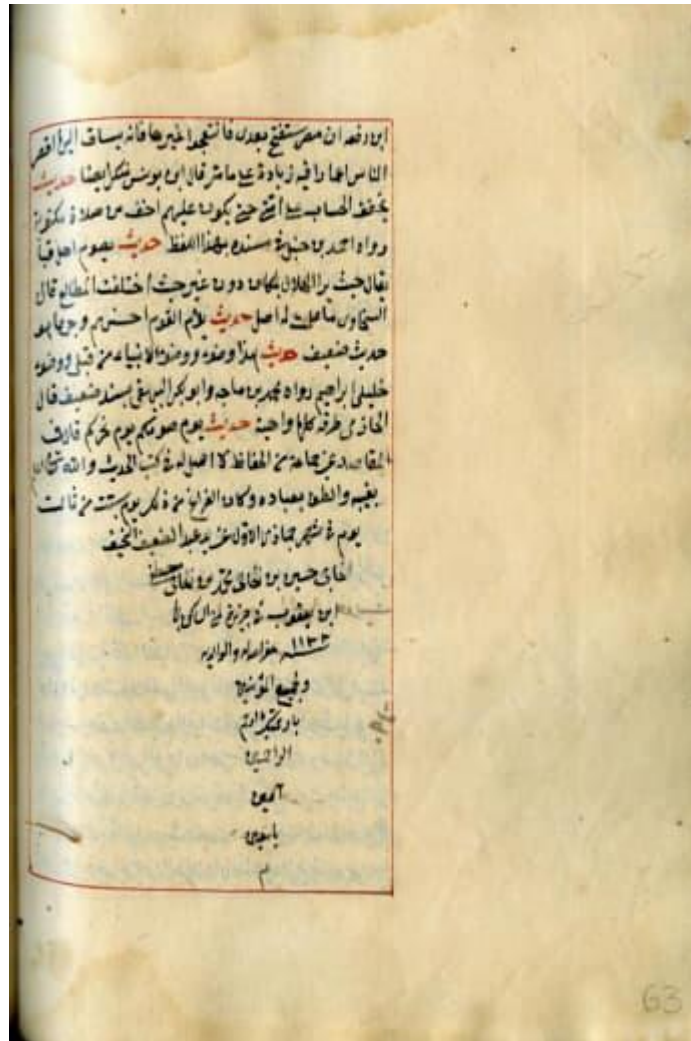 ابن رفعه ان مصر ستفتح بعدى فانتجعوا خيرها فانه يساق اليها اقصر
الناس اعمارا فيه زيادة على ما مر قال ابن يونس منكر ايضا حديث
يخفف الحساب على امتى حتى يكون عليهم اخف من صلاة مكتوبة
رواه احمد بن حنبل فى مسنده بهذا اللفظ حديث يصوم اهل قبا
يقال حيث يرا الهلال بمكان دون غير حيث اختلفت المطالع قال
السخاوى ما علمت له اصل حديث يؤم القوم احسنهم وجها هو
حديث ضعيف حديث هذا وضوء ووضوء الانبياء من قبلى ووضوء
خليلى ابراهيم رواه محمد بن ماجه وابو بكر البيهقى بسند ضعيف قال
طرقه كلها واهية حديث يوم صومكم يوم نحركم قال فى
المقاصد عن جماعة من الحفاظ لا اصل له فى كتب الحديث والله
بغيبه والطف بعباده وكان الفراغ من يوم سبت من ثالث
يوم فى شهر جماذى الاول عن يد عبد الضعيف النحيف
حسين بن
ابن يعقوب فى
١١٣٣ غفر الله والوالديه
ولجميع المؤمنين
الراحمين
آمين
يا معين
م
63